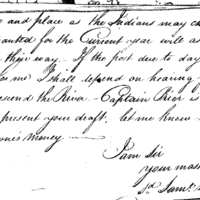 and place as the Indians may c
wanted for the Current year will as
their way. If the post due to day
for me I shall depend on hearing f
escend the River - Captain Prior is
present your draft. let me know
Money
I am Sir
your most
Saml.